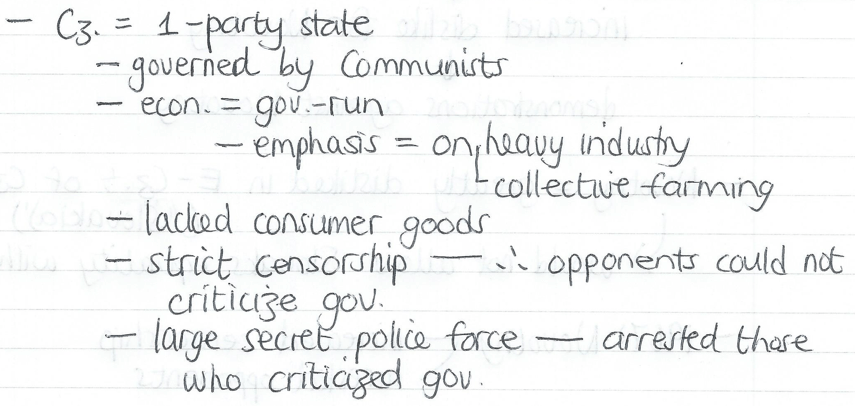 - Cz. = 1-party state
- governed by Communists
- econ. = gov.-run
- emphasis = on heavy industry
collective farming
- lacked consumer goods
- strict censorship — ∴ opponents could not
criticize gov.
- large secret police force — arrested those
who criticized gov.